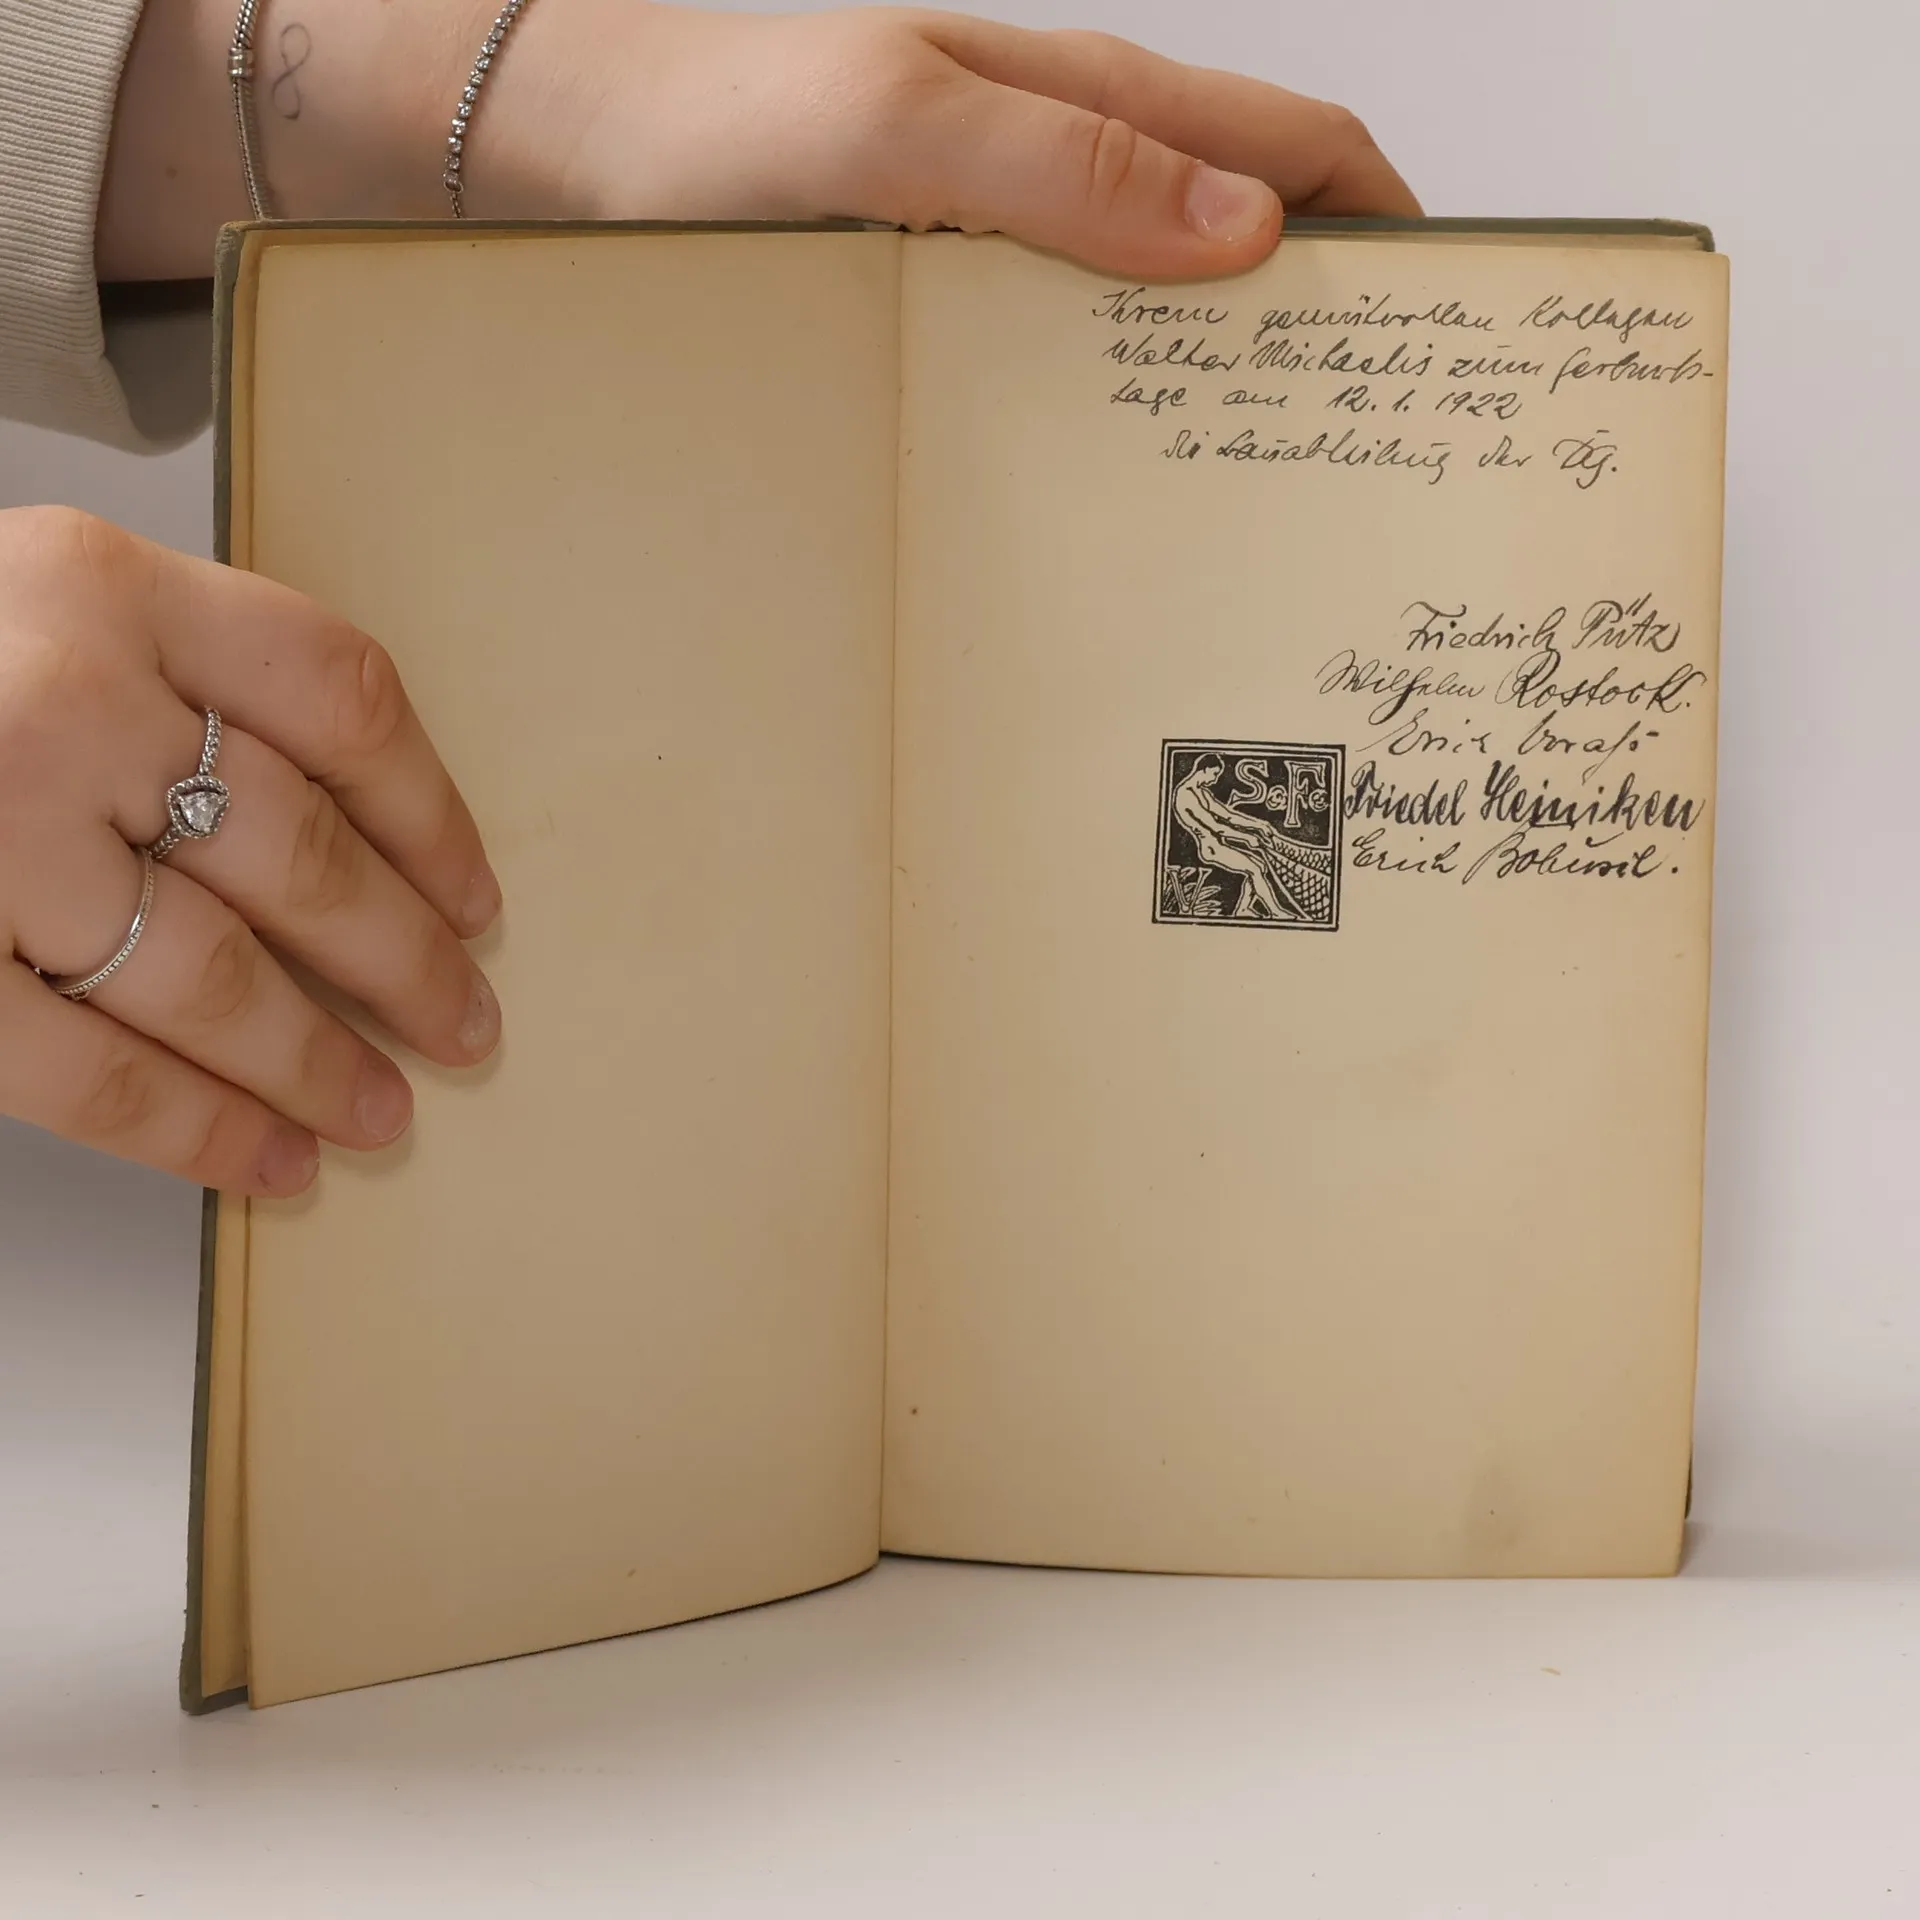 Ihrem gemütvollen Kollegen
Walter Michaelis zum Geburts-
tage am 12. 1. 1922
die Bauabteilung der Dg.
Friedrich Pütz
Wilhelm Rostock.
Erich
S. F.
Friedel Heiniken
V
Erich